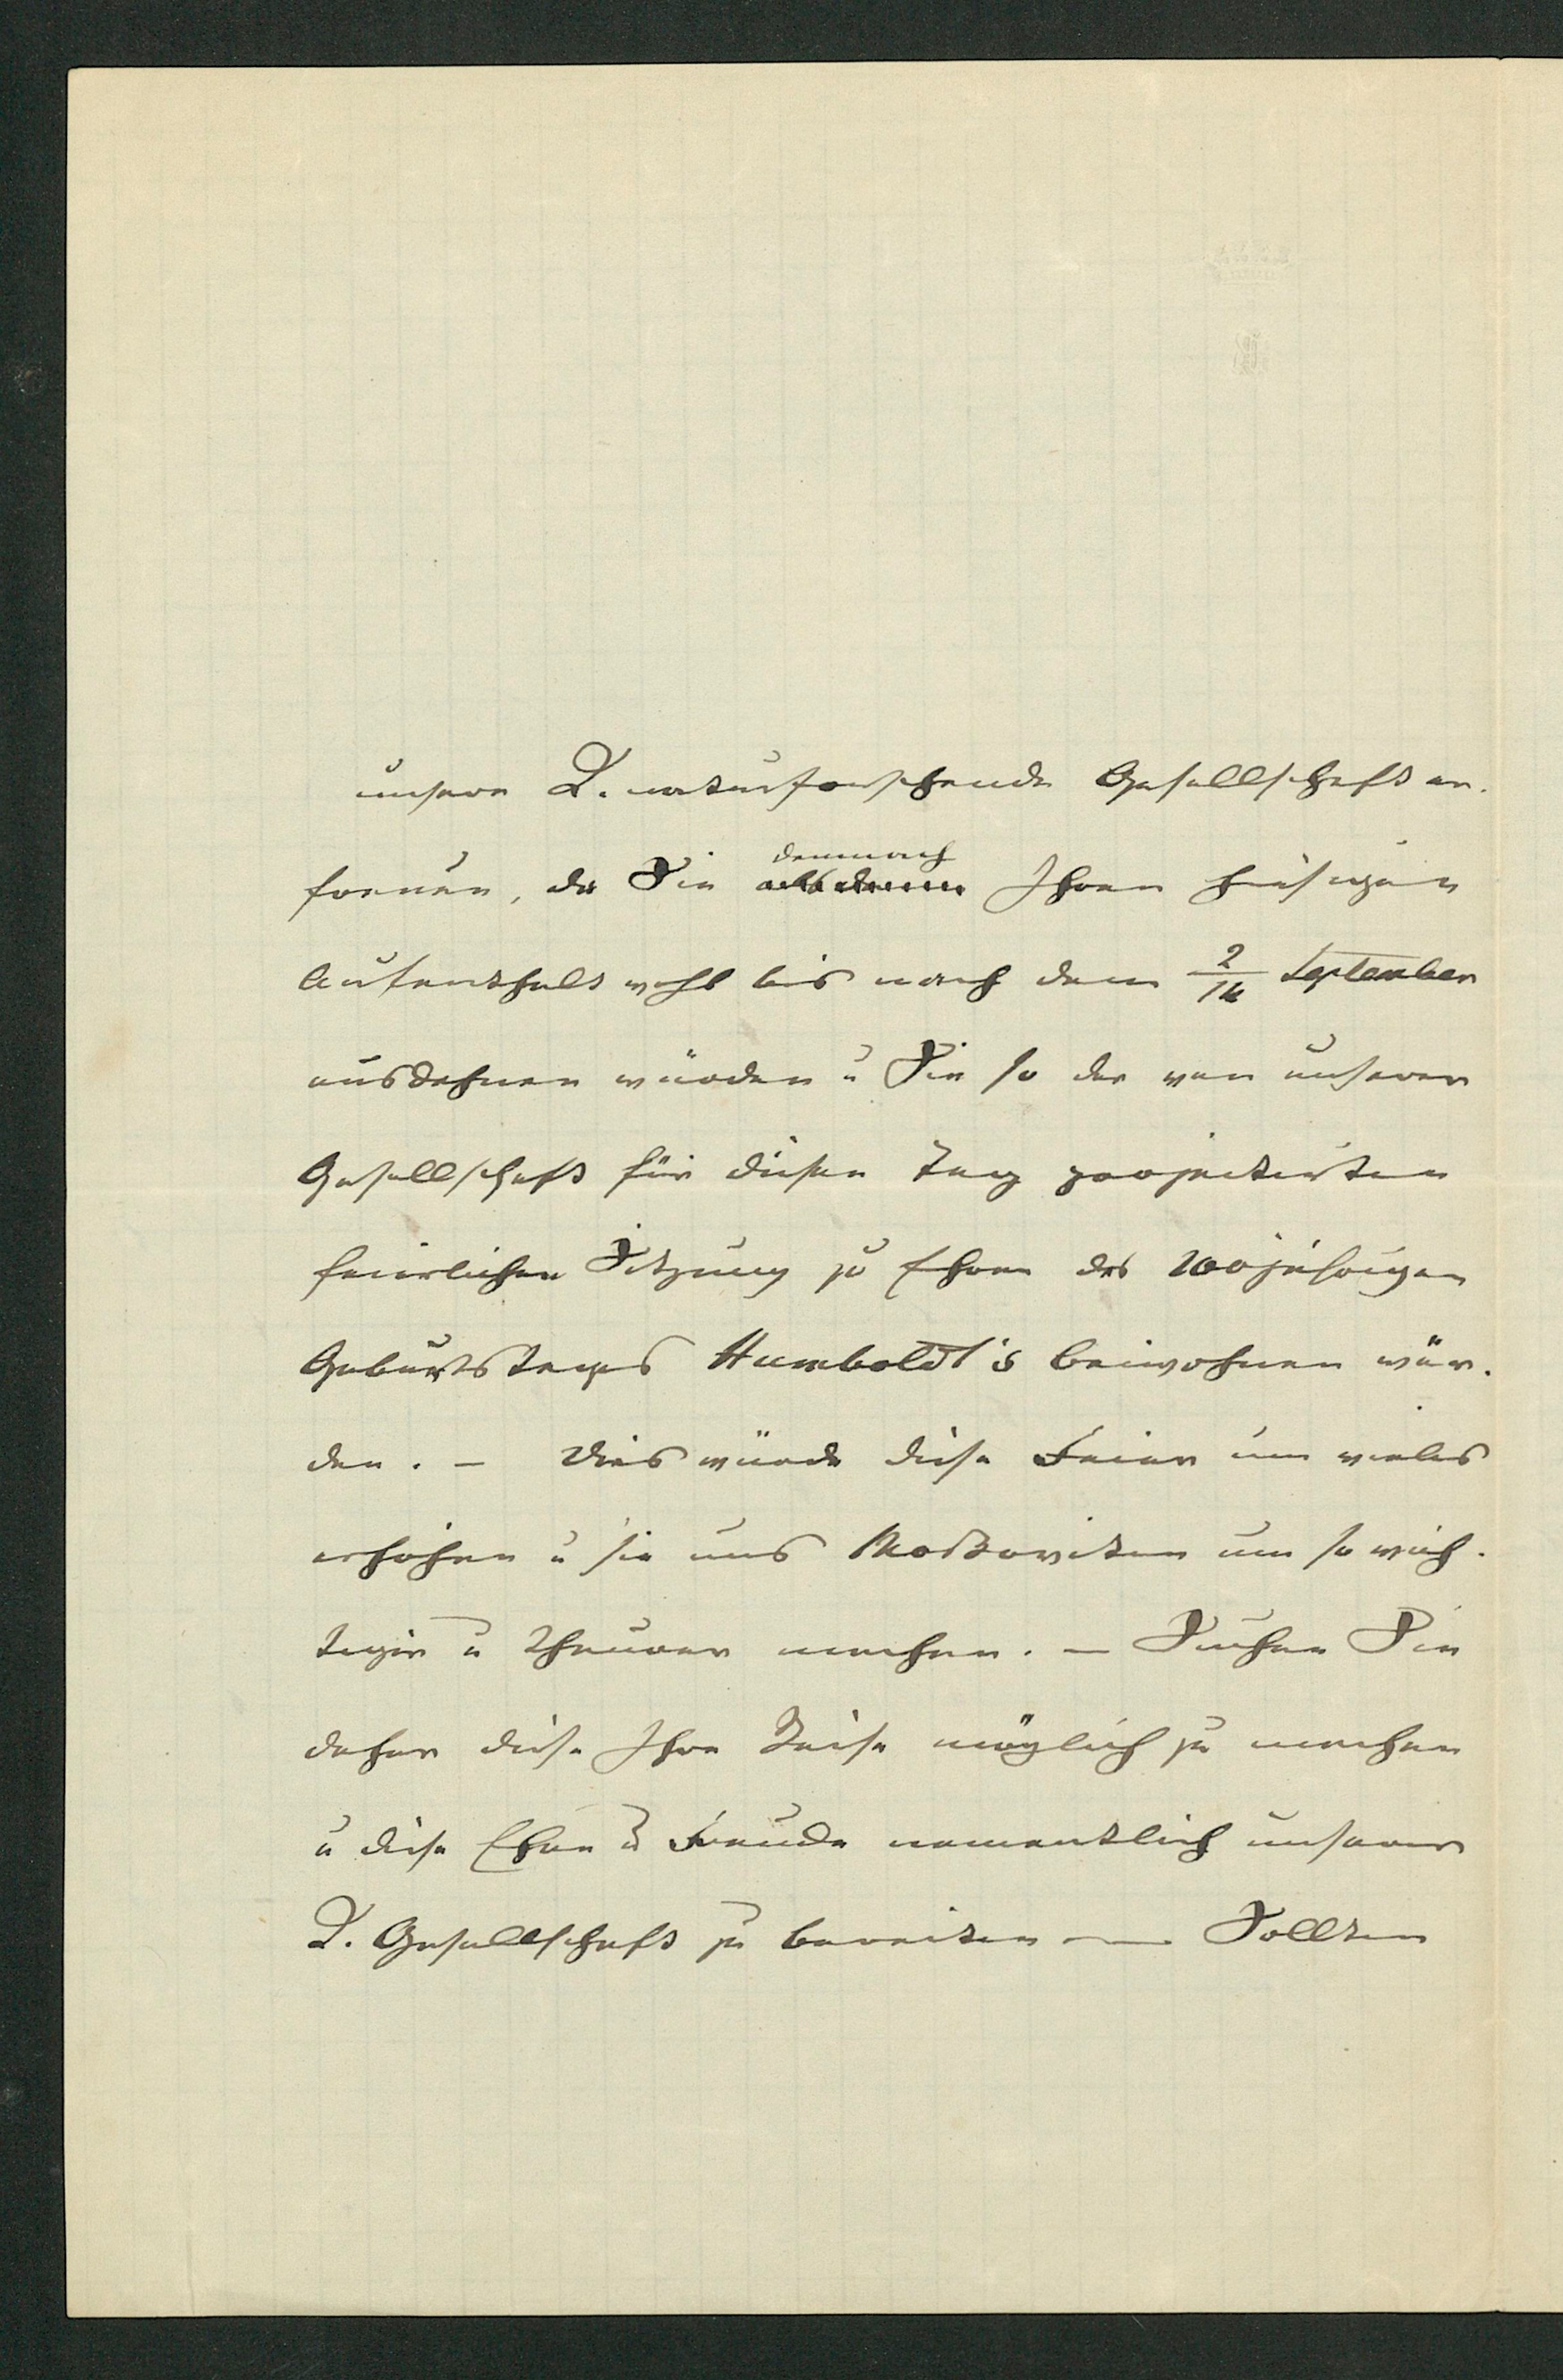 unsere K. naturforschende Gesellschaft er-
freuen, da Sie demnach Ihren hiesigen
Aufenthalt wohl bis nach dem 2/14 September
ausdehnen würden u Sie so der von unserer
Gesellschaft für diesen Tag projectirten
feierlichen Sitzung zu Ehren des 100jährigen
Geburtstages Humboldt's beiwohnen wür-
den. – Dies würde diese Feier um vieles
erhöhen u sie uns Moskoviten um so wich-
tiger u theurer machen. – Suchen Sie
daher diese Ihre Reise möglich zu machen
u diese Ehre u Freude namentlich unserer
K. Gesellschaft zu bereiten — Sollten